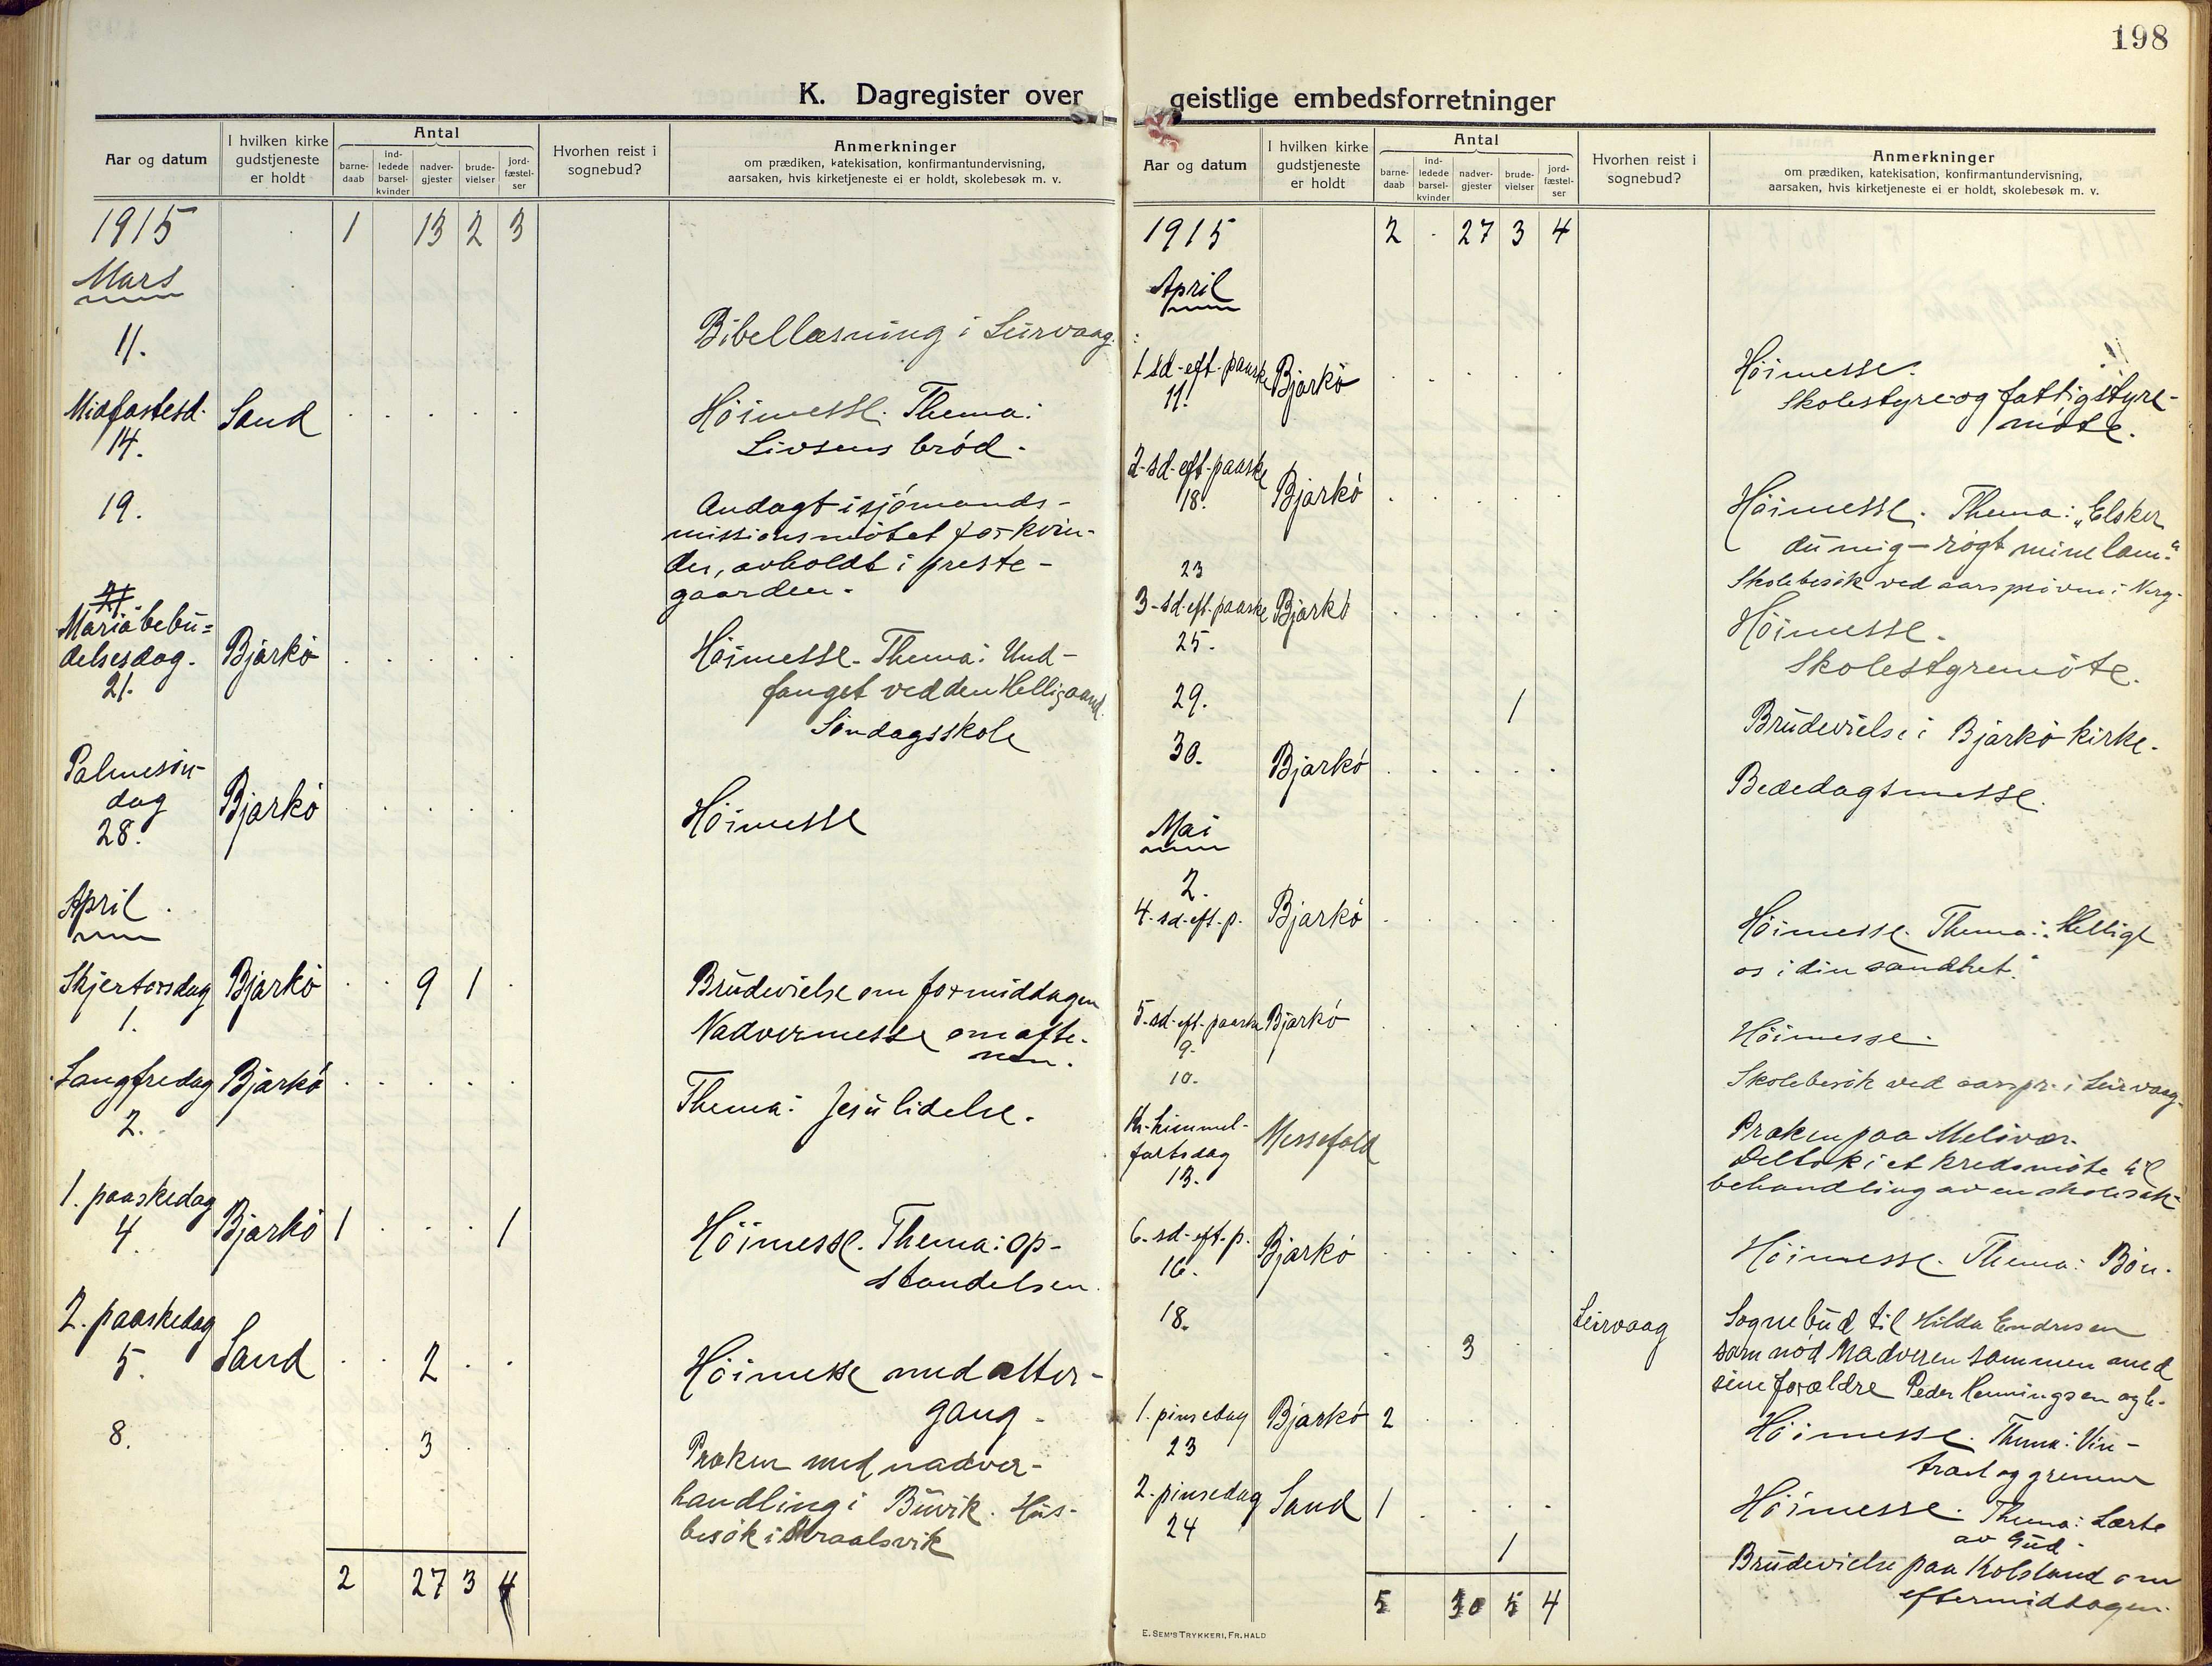 198
K. Dagregister over
Aar og datum
I hvilken kirke
gudstjeneste
er holdt
Antal
barne-
daab
ind-
ledede
barsel-
kvinder
nadver-
gjester
brude-
vielser
jord-
fæstel-
ser
Hvorhen reist i
sognebud?
Anmerkninger
om prædiken, katekisation, konfirmantundervisning,
aarsaken, hvis kirketjeneste ei er holdt, skolebesøk m. v.
1915 1 13 2 3
Mars
11. Bibellæsning i Leirvaag.
Midfastesd. Sand Höimesse. Thema:
14. Livsens bröd.
19. Andagt i sjömands-
missionsmötet for kvin-
der, avholdt i preste-
gaarden.
Mariä bebu=
delsesdag. Bjarkö Höimesse. Thema: Und-
21. fanget ved den Helligaand.
Söndagsskole
Palmesön-
dag Bjarkö Höimesse
28.
April
Skjertorsdag Bjarkö 9 1 Brudevielse om formiddagen
1. Nadvermesse om afte-
nen.
Langfredag Bjarkö Thema: Jesu lidelse.
2.
1. paaskedag
4. Bjarkö 1 1 Höimesse. Thema: op-
standelsen.
2. paaskedag
5. Sand 2 Höimesse med alter-
gang.
8. 3 Præken med nadver-
handling i Buvik. Hus-
besök i
2 27 3 4
geistlige embedsforretninger
Aar og datum
I hvilken kirke
gudstjeneste
er holdt
Antal
barne-
daab
ind-
ledede
barsel-
kvinder
nadver-
gjester
brude-
vielser
jord-
fæstel-
ser
Hvorhen reist i
sognebud?
Anmerkninger
om prædiken, katekisation, konfirmantundervisning,
aarsaken, hvis kirketjeneste ei er holdt, skolebesøk m. v.
1915 2 27 3 4
April
1. sd. eft. paaske Bjarkö Höimesse.
11. Skolestyre- og fattigstyre-
möte.
2. sd. eft. paaske
18. Bjarkö Höimesse. Thema: "Elsker
du mig – rögt mine lam."
23 Skolebesök ved aarspröven i Nerg.
3. sd. eft. paaske Bjarkö Höimesse.
25. Skolestyremöte.
29. 1 Brudevielse i Bjarkö kirke.
30. Bjarkö Bededagsmesse.
Mai
2.
4. sd. eft. p. Bjarkö Höimesse. Thema: "Hellige
os i din sandhet."
5. sd. eft. paaske Bjarkö Höimesse.
9.
10. Skolebesök ved aarspr. i Leirvaag.
Kr. himmel- Messefald Præken paa Melövær.
fartsdag Deltok i et kredsmöte til
13. behandling av en skolesak.
6. sd. eft. p.
16. Bjarkö Höimesse. Thema: Bön.
18. Leirvaag Sognebud til Hilda Endresen
3 som nöd Nadveren sammen med
sine forældre Peder Henningsen og h.
1. pinsedag Bjarkö 2 Höimesse. Thema: Vin-
23 træet og grenene
2. pinsedag Sand 1 Höimesse. Thema: Lærte
24 av Gud.
1 Brudevielse paa Kolsland om
eftermiddagen.
5 30 5 4
E. SEM'S TRYKKERI, FR.HALD